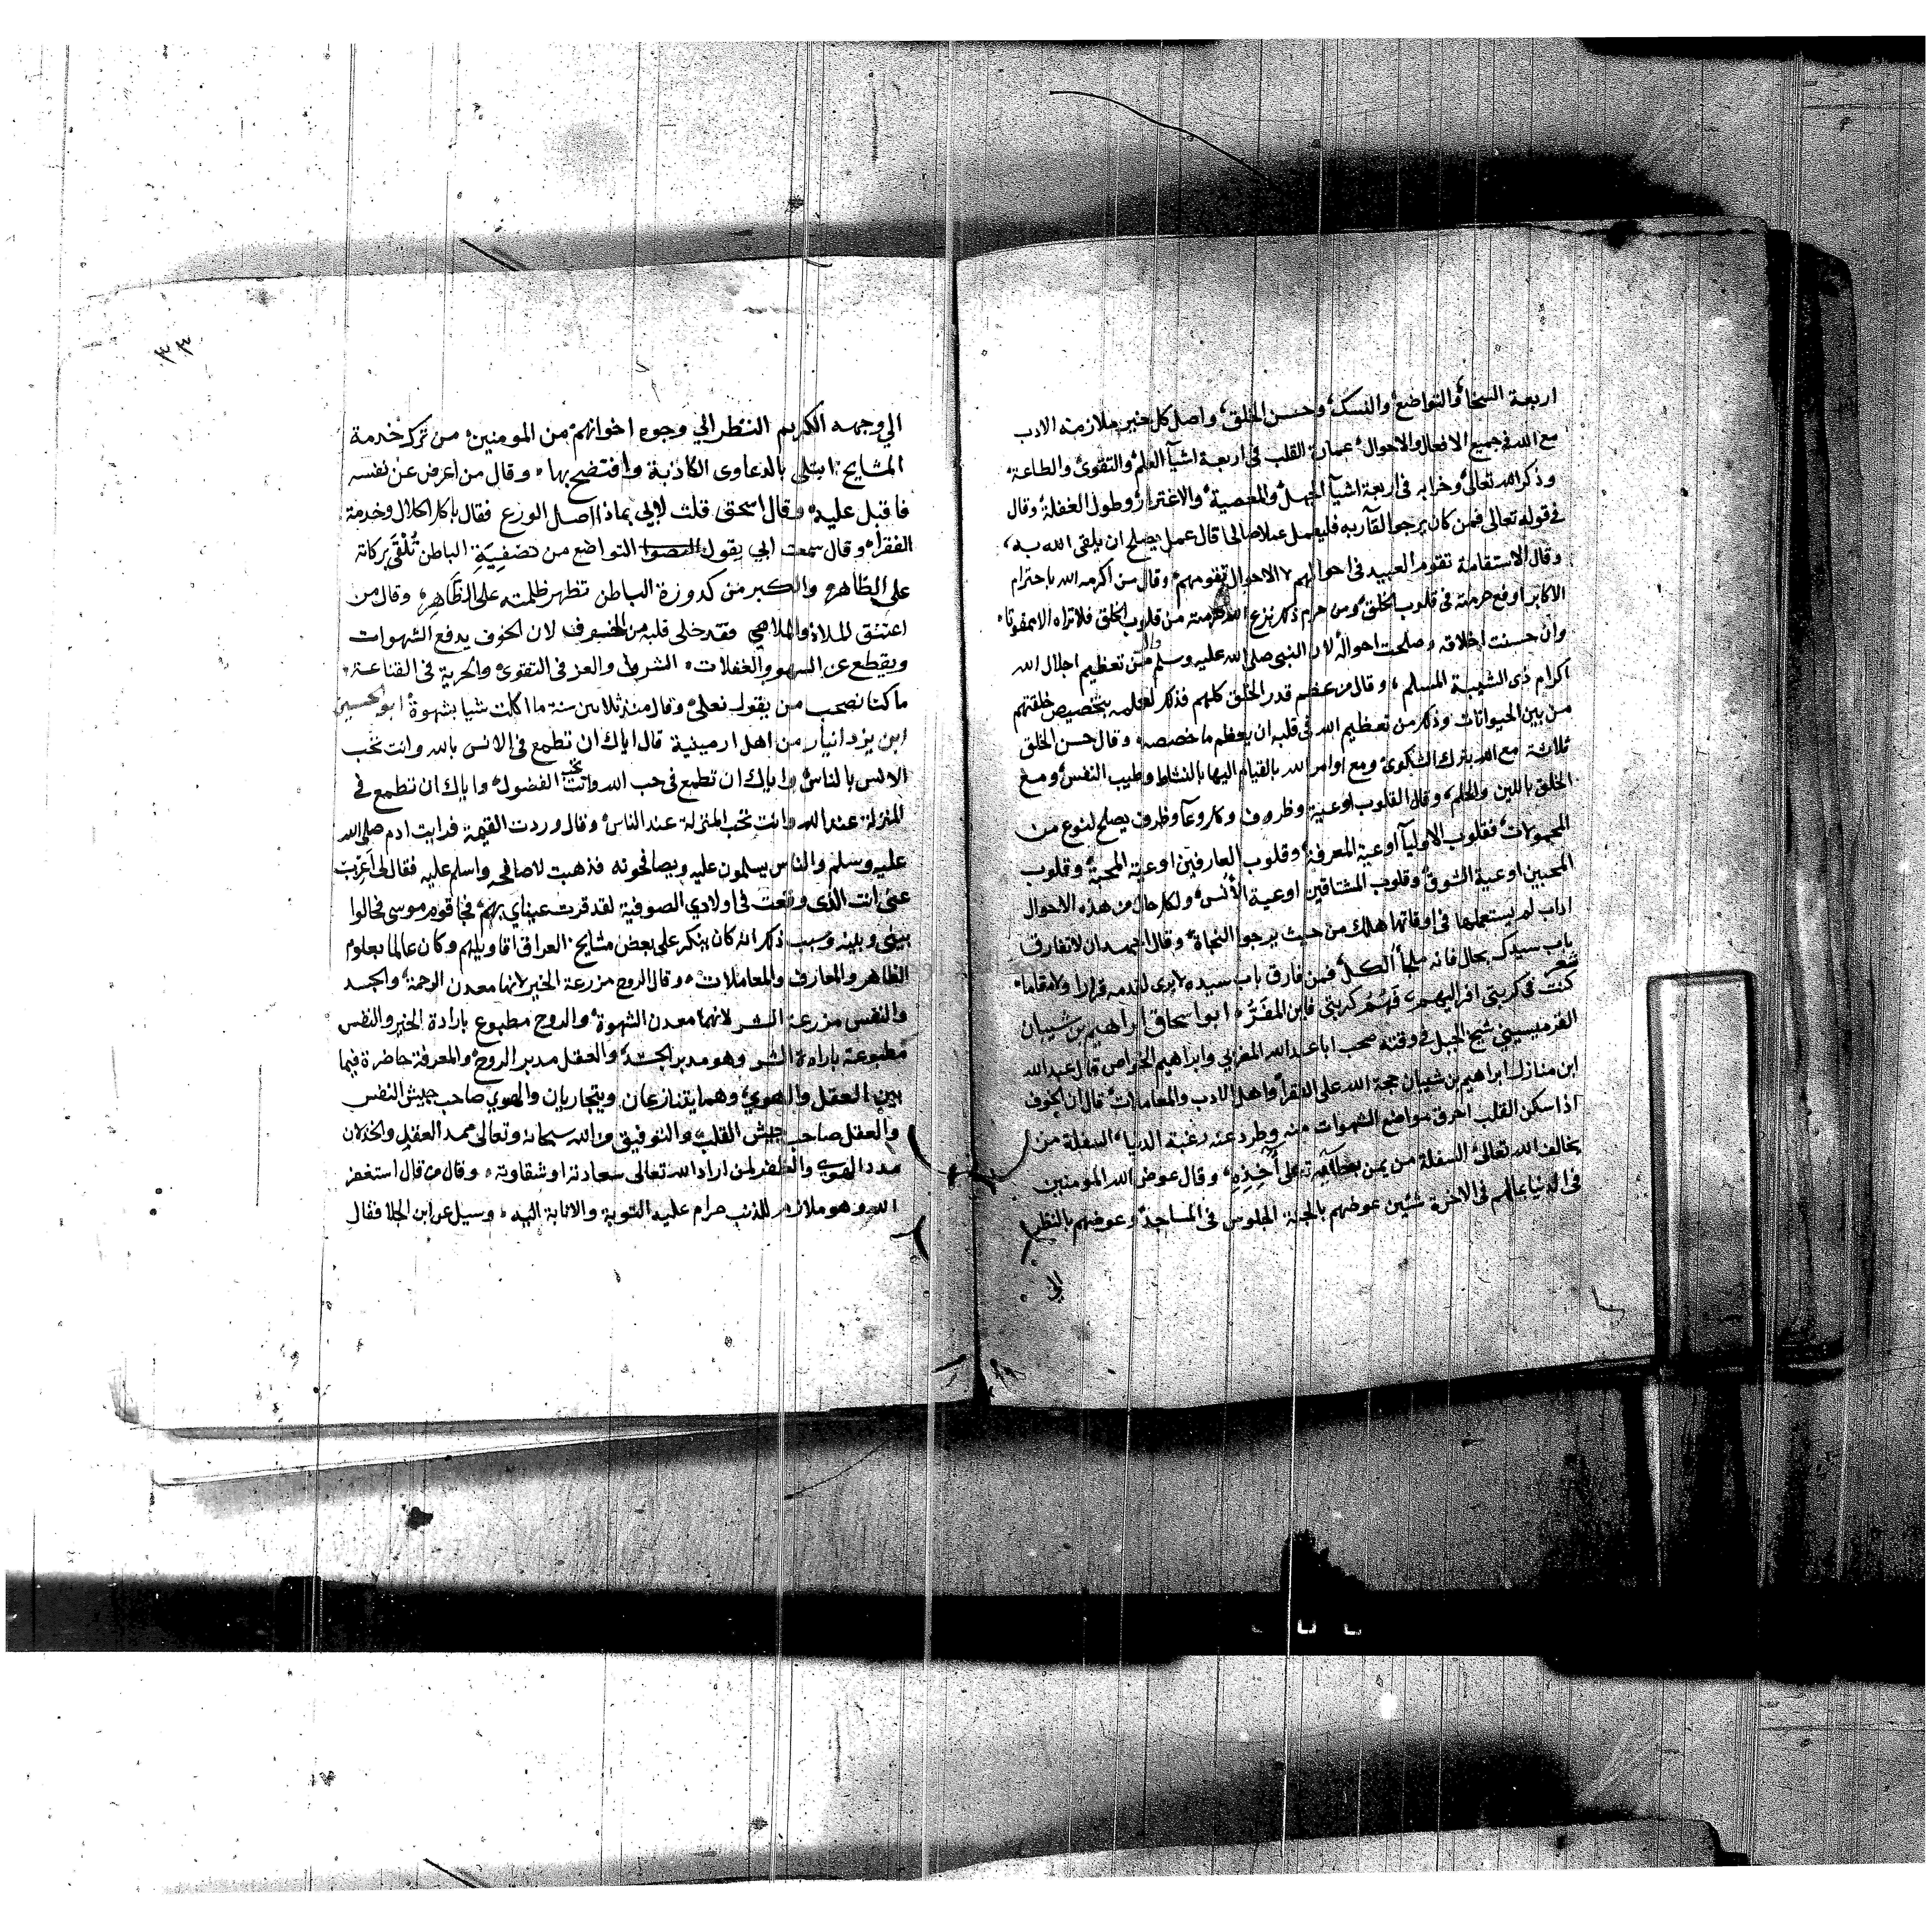 اربعة السخا والتواضع والنسك وحسن الخلق واصل كل خير ملازمة الادب
مع الله فى جميع الافعال والاحوال عمارة القلب فى اربعة اشيآ العلم والتقوى والطاعة
وذكر الله تعالى وخرابه فى اربعة اشيآ الجهل والمعصية والاغترار وطول الغفلة وقال
فى قوله تعالى فمن كان يرجوا لقآ ربه فليعمل عملا صالحا قال عمل يصلح ان يلقى الله به
وقال الاستقامة تقوم العبيد فى احوالهم لا الاحوال تقومهم وقال من اكرمه الله باحترام
الاكابر اوقع حرمته فى قلوب الخلق ومن حرم ذكر نزع الله حرمته من قلوب الخلق فلا تراه الا ممقوتا
وان حسنت اخلاقه وصلحت احواله لان النبى صلى الله عليه وسلم قال من تعظيم اجلال الله
اكرام ذى الشيبة المسلم وقال من عظم قدر الخلق كلهم فذكر لعلمه بتخصيص خلقتهم
من بين الحيوانات وذكر من تعظيم الله فى قلبه ان يعظم ما خصصه وقال حسن الخلق
ثلاثة مع الله بترك الشكوى ومع اوامر الله بالقيام اليها بالنشاط وطيب النفس ومع
الخلق باللين والحلم وقال القلوب اوعية وظروف وكل وعآ وظرف يصلح لنوع من
المحمولات فقلوب الاوليآ اوعية المعرفة وقلوب العارفين اوعية المحبة وقلوب
المحبين اوعية الشوق وقلوب المشتاقين اوعية الأنس ولكل حال من هذه الاحوال
اداب لم يستعملها فى اوقاتها هلك من حيث يرجوا النجاة وقال اجهد ان لا تفارق
باب سيدك بحال فانه ملجأ الكل فمن فارق باب سيده لا يرى لقدمه قرارا ولا مقاما
شعر
كنت فى كربتى افر اليهم فهم كربتى فاين المفر ابو اسحاق ابراهيم بن شيبان
القرميسيني شيخ الجبل فى وقته صحب ابا عبد الله المغربي وابراهيم الخواص قال عبد الله
ابن منازل ابراهيم بن شيبان حجة الله على الفقرآ واهل الادب والمعاملات قال ان الخوف
اذا سكن القلب احرق مواضع الشهوات منه وطرد عنه رغبة الدنيا السفلة من
يخالف الله تعالى السفلة من يمن بعطآيه على آخذه وقال عوض الله المومنين
فى الدنيا بمالهم فى الاخرة شئين عوضهم بالجنة الجلوس فى المساجد وعوضهم بالنظر
الى
٣٣
الي وجهه الكريم النظر الي وجوه اخوانهم من المومنين من ترك خدمة
المشايخ ابتلى بالدعاوى الكاذبة وافتضح بها وقال من اعرض عن نفسه
فاقبل عليه وقال اسحق قلت لابي بماذا اصل الورع فقال باكل الحلال وخدمة
الفقرآ وقال سمعت ابي يقول التواضع من تصفية الباطن تلقى بركاته
على الظاهر والكبر من كدورة الباطن تظهر ظلمته على الظاهر وقال من
اعتنق الملاذ والملاهي فقد خلى قلبه من الخوف لان الخوف يدفع الشهوات
ويقطع عن السهو والغفلات الشرف والعز فى التقوى والحرية فى القناعة
ما كنا نصحب من يقول نعلى وقال منذ ثلاثين سنة ما اكلت شيا بشهوة ابو الحسين
ابن يزدانيار من اهل ارمينية قال اياك ان تطمع فى الانس بالله وانت تحب
الانس بالناس واياك ان تطمع فى حب الله وانت تحب الفضول واياك ان تطمع فى
المنزلة عند الله وانت تحب المنزلة عند الناس وقال وردت القيمة فرايت ادم صلى الله
عليه وسلم والناس يسلمون عليه ويصافحونه فذهبت لاصافحه واسلم عليه فقال لى اعزب
عنى انت الذى وقعت فى اولادي الصوفية لقد قرت عيناي بهم فجا قوم موسى فحالوا
بينى وبينه وسبب ذكر انه كان ينكر على بعض مشايخ العراق اقاويلهم وكان عالما بعلوم
الظاهر والمعارف والمعاملات وقال الروح مزرعة الخير لانها معدن الرحمة والجسد
والنفس مزرعة الشر لانهما معدن الشهوة والروح مطبوع بارادة الخير والنفس
مطبوعة بارادة الشر وهو مدبر الجسد والعقل مدبر الروح والمعرفة حاضرة فيما
بين العقل والهوي وهما يتنازعان ويتجاريان والهوي صاحب جيش النفس
والعقل صاحب جيش القلب والتوفيق من الله سبحانه وتعالى ممد العقل والخذلان
مدد الهوي والظفر لمن اراد الله تعالى سعادته او شقاوته وقال من قال استغفر
الله وهو ملازم للذنب حرام عليه التوبة والانابة اليه وسيل عن ابن الجلا فقال